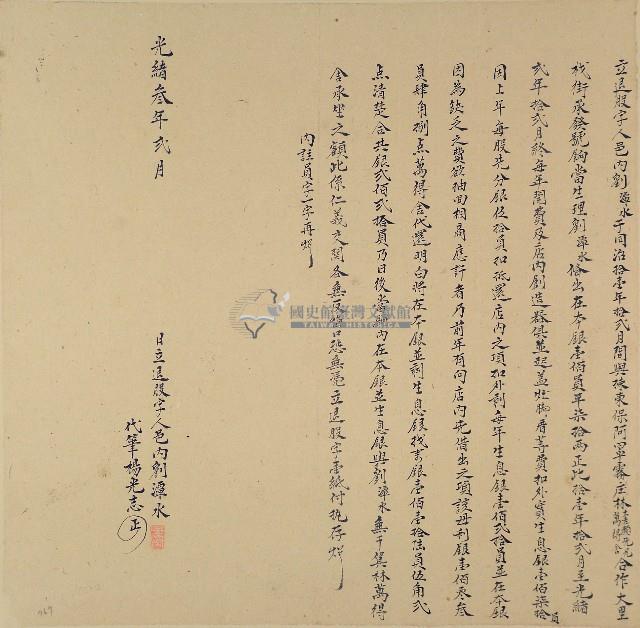 立退股字人邑內劉潭水于同治拾壹年拾弍月間與揀東保阿罩霧庄林合作大里
杙街承發號鉤當生理劉潭水備出在本銀壹佰員年柒拾両正比拾壹年拾弍月至光緒
弍年拾弍月終每年開費及店內創造器俱並起蓋灶脚厝等費扣外實生息銀壹佰柒拾員
因上年每股先分銀伍拾員扣抵還店內之項扣外剩每年生息銀壹佰弍拾員並在本銀
因為缺乏之費欲抽回相商應許者乃前年有向店內先借出之項該母利銀壹佰零叁
員肆角捌点萬得舍代還明白將在本銀並剩生息銀找書銀壹佰壹拾陆員伍角弍
点清楚合共銀弍佰弍拾員乃日後當號內在本銀並生息銀與劉潭水無干巽林萬得
舍承坐之額此係仁義交関各無反悔口恐無憑立退股字壹紙付执存炤
內註員字一字再炤
國史館臺灣文獻館
TAIWAN HISTORICA
光緒叁年弍月
日立退股字人邑內劉潭水
代筆楊光志
正
769